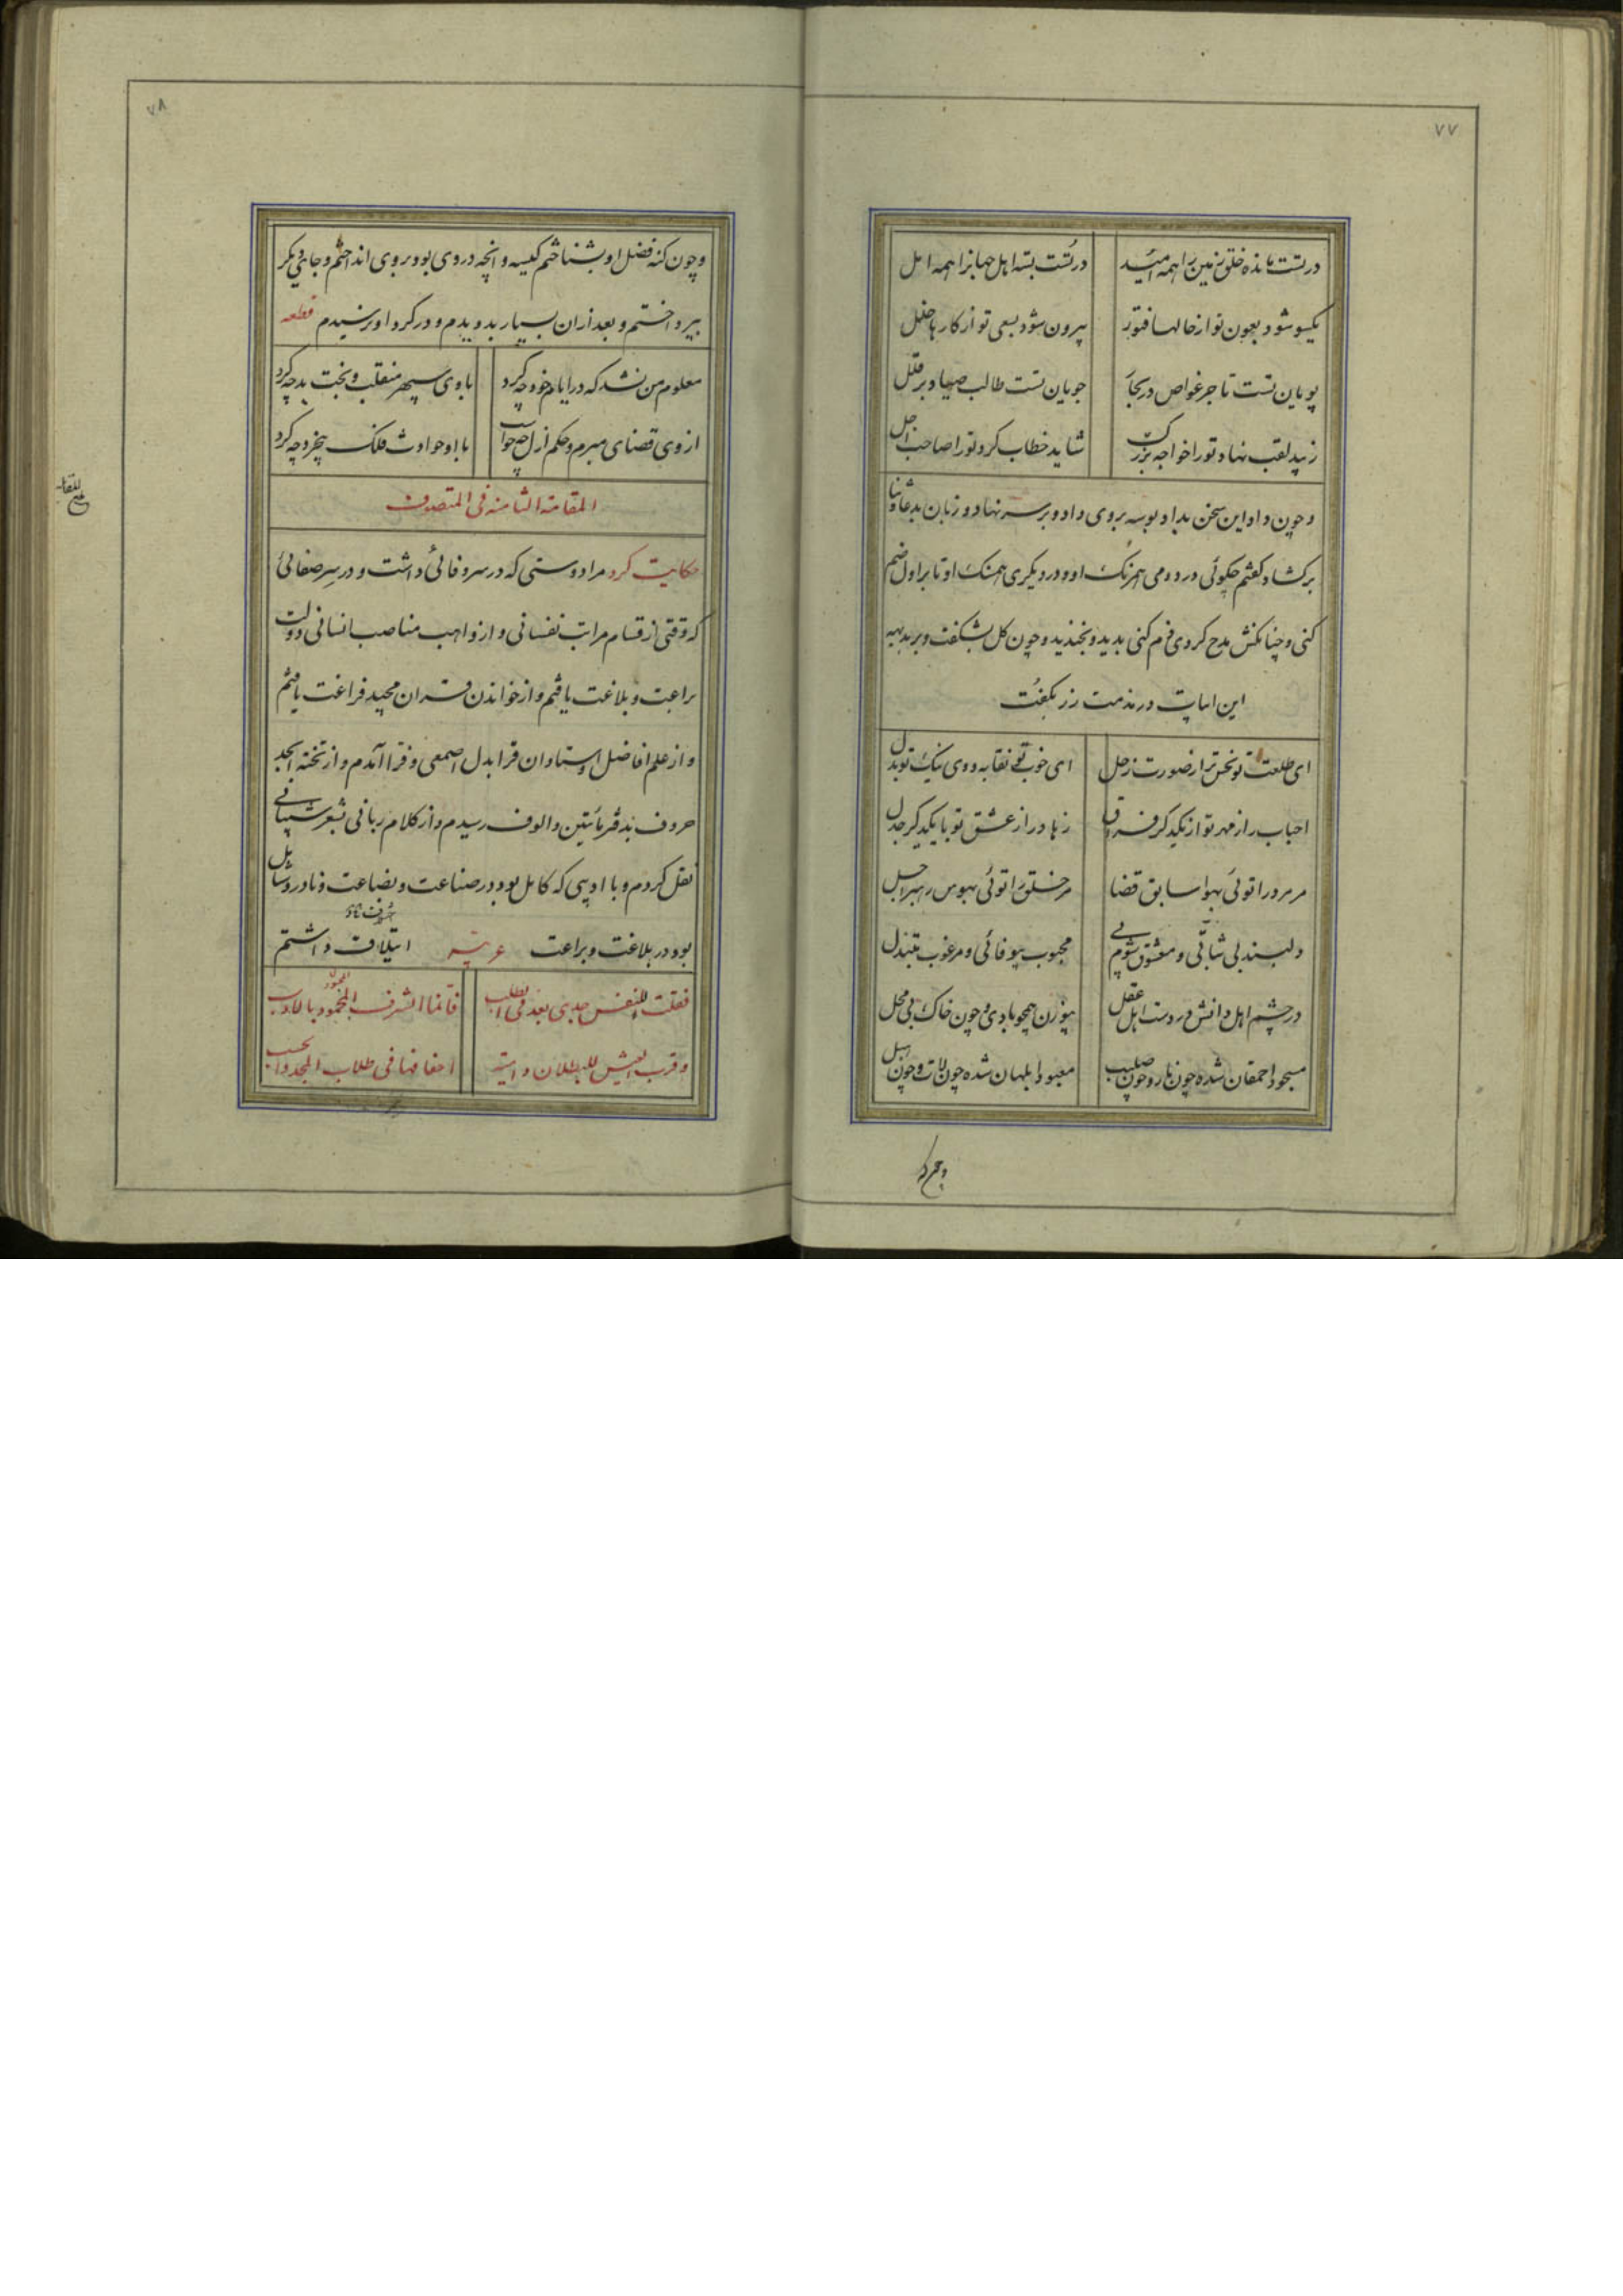 ۷۷
در تست مانده خلق زمین را همه امید در تست بسته اهل جهانرا همه امل
یکسو شود بعون تو از حالها فتور بیرون شود بسعی تو از کارها خلل
پویان تست تاجر غواص در بحار جویان تست طالب صیاد بر قلل
زیبد لقب نهاد تو را خواجه بزرگ شاید خطاب کرد تو را صاحب اجل
و چون داد این سخن بداد بوسه بروی داد و بر سر نهاد و زبان بدعا و ثنا
برکشاد گفتم چگوئی در دومی همرنک او و در دیگری همسنک او تا بر اول ضم
کنی و چنانکش مدح کردی ذم کنی بدید و بخندید و چون کل بشکفت و بر بدیهه
این ابیات در مذمت زر بگفت
ای طلعت تو نحس تر از صورت زحل ای خوب تو نفایه و وی نیک تو بدل
احباب را ز مهر تو از یکدیگر فراق زهاد را ز عشق تو با یکدیگر جدل
مر مرد را توئی بهوا سابق قضا مر خلق را توئی بهوس رهبر اجل
دلبند بی ثباتی و معشوق شوم پی محبوب بیوفائی و مرغوب مبتذل
در چشم اهل دانش و در دست اهل عقل بیوزن همچو بادی و چون خاک بی محل
مسجود احمقان شده چون نار و چون صلیب معبود ابلهان شده چون لات و چون هبل
و چون که
۷۸
و چون کنه فضل او بشناختم کیسه و آنچه در وی بود بروی انداختم و جای دیگر
بپرداختم و بعد از آن بسیار بدویدم و در گرد او نرسیدم قطعه
معلوم من نشد که در ایام خود چه کرد با وی سپهر منقلب و بخت بد چه کرد
از وی قضای مبرم و حکم ازل چه خواست با او حوادث فلک بیخرد چه کرد
المقامة الثامنة فی التصوف
حکایت کرد مرا دوستی که در سر وفائی داشت و در سر صفائی
که وقتی از قسام مراتب نفسانی و از واهب مناصب انسانی دولت
براعت و بلاغت یافتم و از خواندن قران مجید فراغت یافتم
و از علم افاضل و استادان قرا بدل اصمعی و فرا آمدم و از تخته ابجد
حروف بدفتر مئین و الوف رسیدم و از کلام ربانی بشعر شیبانی
نقل کردم و با ادیبی که کامل بود در صناعت و بضاعت و نادر و شامل
بود در بلاغت و براعت عربیة ایتلاف داشتم
فقلت للنفس جدی بعد فی الطلب فانما الشرف المحمود بالادب
و قرب العیش للبطلان و اسخفا فها فی طلاب المجد و الحسب